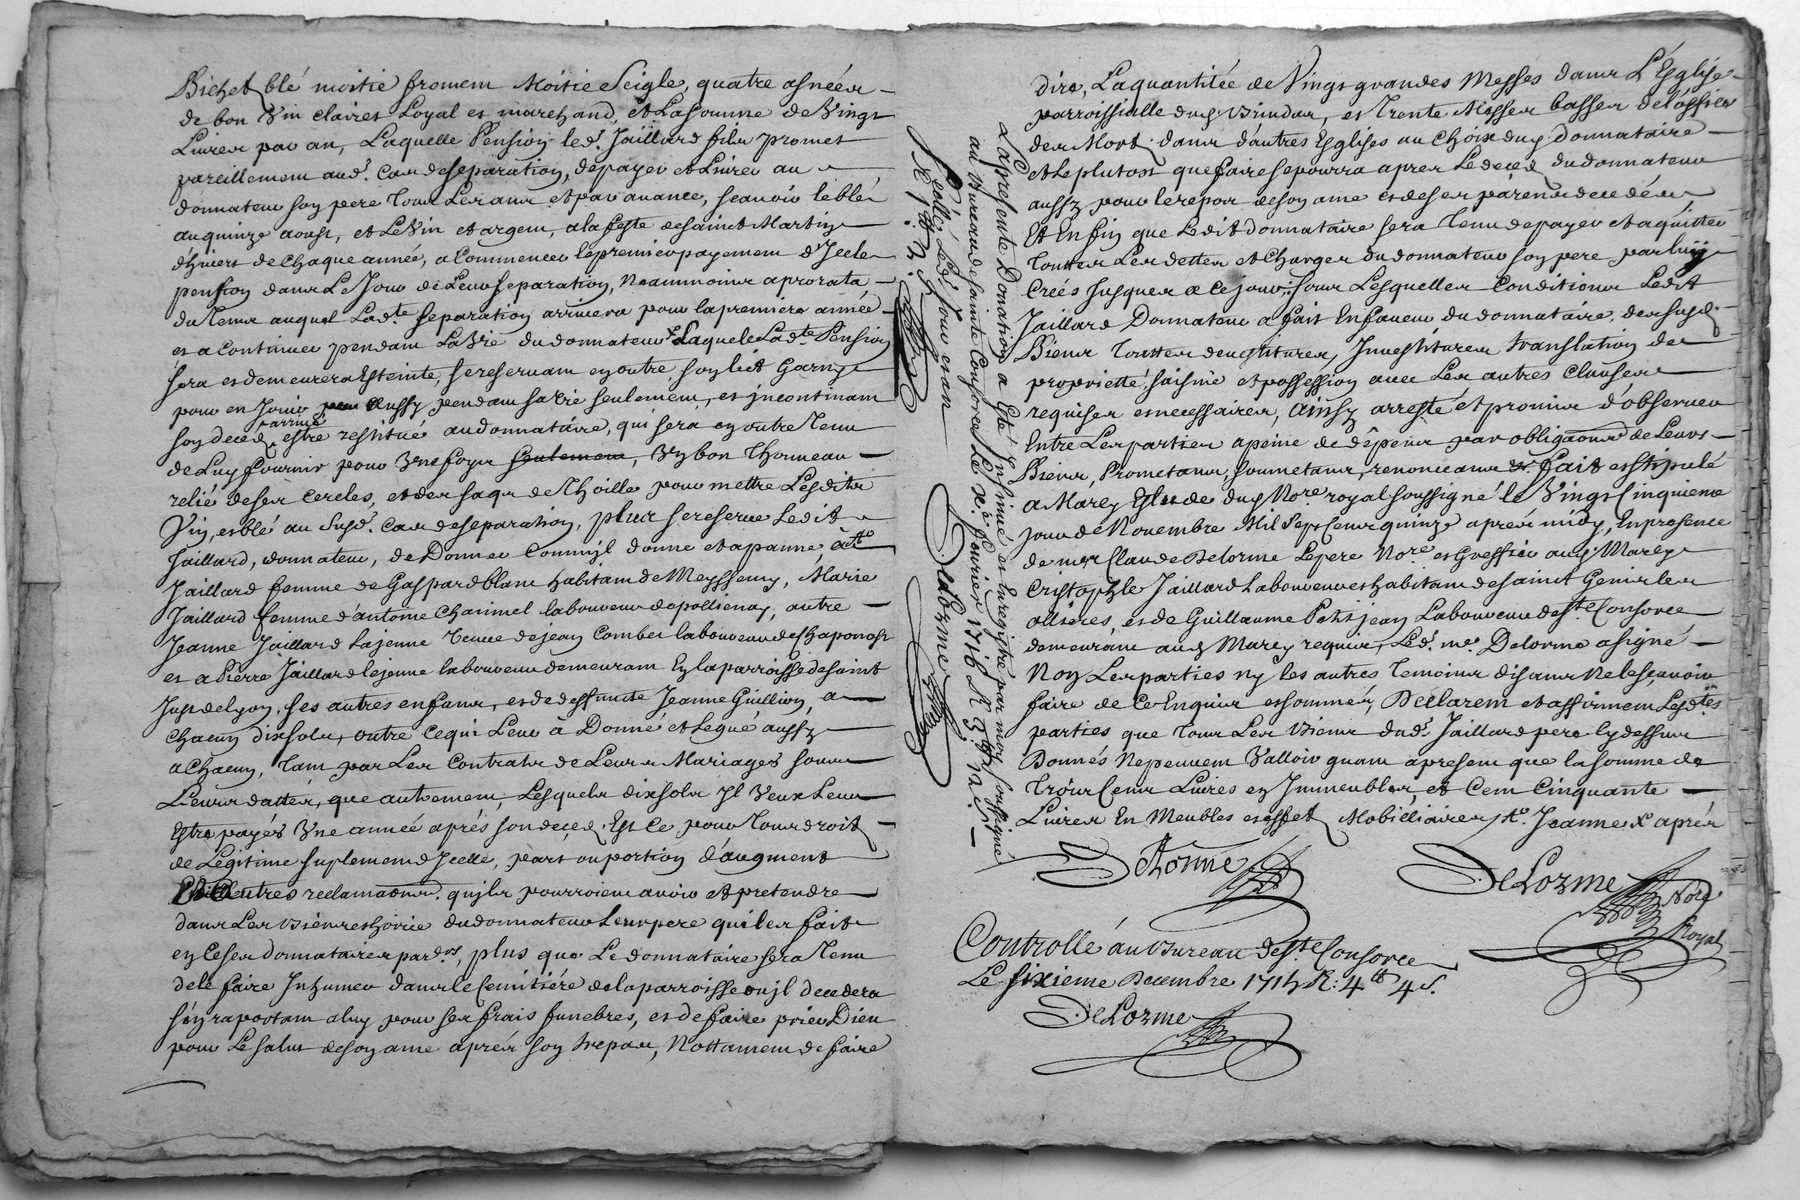 Bichet blé moitié froment Moitié Seigle, quatre asnées
de bon Vin clairet Loyal et marchand, et La somme de Vingt
Livres par an, Laquelle Pension led. Jaillard fils promet
pareillement aud. Cas de separation, de payer et Livrer au
donnateur son pere Tous Les ans et par avance, scavoir le blé
au quinze aoust, et Le Vin et argent, a la feste de saint Martin
d'hivert de chaque année, a Commencer le premier payement d'Icele
pension dans Le Jour de Leur separation, Neanmoins a prorata
du Tems auquel Lad.te separation arrivera pour la premiere année
et a continuer pendant La Vie du donnateur Laquele Lad.te Pension
sera et demeurera Esteinte, se reservant en outre, son lict Garny
pour en Jouir aussy pendant sa Vie seulement, et incontinant
son deced arrivé estre restitué au donnataire, qui sera en outre Tenu
de Luy fournir pour Une foy Seulement, Un bon Thonneau
relié de ses cercles, et des sacqs de Thoille pour mettre Lesdits
Vin, et blé au Susd. Cas de separation, plus se reserve Ledit
Jaillard, donnateur, de Donner Comm'il donne et apanne, à
Jaillard femme de Gaspard blanc habitant de Meyssemy, Marie
Jaillard femme d'antoine Charimel laboureur de pollienay, autre
Jeanne Jaillard Lajeune Veuve de jean Combet laboureur de chaponost
et a Pierre Jaillard lejeune laboureur demeurant En la parroisse de saint
Just de lyon, ses autres enfans, et de deffuncte Jeanne Guillion, a
chacun dix sols, outre ce qui Leur à Donné et Legué aussy
a Chacun, Tant par Les Contrats de Leurs Mariages sous
Leurs dattes, que autrement, Lesquels dix sols Il Veux Leur
Estre payés Une année aprés son deced. Est Ce pour Tous droit
de Legitime suplement d'Icelle, part ou portion d'augment
et autres reclamaons. qu'ils pourroient avoir et pretendre
dans Les Biens et hoirie du donnateur Leur pere qu'il er fait
en Ce ses donnataires par. plus que Le donnataire sera Tenu
de le faire Inhumer dans le Cemitiére de la parroisse ou jl decedera
s'en raportant a luy pour ses frais funebres, et de faire prier Dieu
pour Le salut de son ame aprés son trepas, Nottament de faire
Scellé Led. Jour et an
R 18 s.
La presente Donation a Esté Insinué et Enregistré par moy soussigné
au Bureau de sainte Consorce Le xe. fevrier 1716 R
Delorme
dire, La quantitée de Vingt grandes Messes dans L'Église
parroissialle dud. Vindas, et Trente Messes basses de l'ossier
des Mort. dans d'autres Esglises au Choix dud. donnataire
et Le plutost que faire se pourra apres Le deced du donnateur
aussy pour le repos de son ame et de ses parens decedés
Et Enfin que Ledit donnataire sera Tenu de payer et aquitter
Touttes Les dettes et Charges du donnateur son pere par luy
Creés Jusques a ce jour: Sous Lesquelles Conditions Ledit
Jaillard Donnateur a fait En faveur du donnataire, des susd.
Biens Touttes deuestitures, Investitures translation de
proprietté saisine et possession avec Les autres Clauses
requises et necessaires, Ainsy arresté et promis d'observer
Entre Les parties a peine de dépens par obligaons de Leurs
Biens, Prometans, soumetans, renonceans & fait et stipulé
a Marcy Estude dud. Nore. royal soussigné le Vingt Cinquieme
jour de Novembre Mil Sept cens quinze aprés midy, En presence
de mre Claude Delorme Le pere Nore. et Greffier aud. Marcy
Cristophle Jaillard Laboureur et habitant de saint Genis les
ollieres, et de Guillaume Petitjean Laboureur de Ste. Consorce
demeurant aud. Marcy requis, Led. me. Delorme a signé
Non Les parties ny les autres Temoins disans Ne le scavoir
faire de Ce Enquis et sommés, Declarent et affirment Lesdtes.
parties que Tous Les Biens dud. Jaillard pere Cy dessus
Donnés Ne peuvent Valloir quant a present que la somme de
Trois Cens Livres en Immeubles, et Cent Cinquante
Livres En Meubles et effet Mobiliaires Jeanne aprés
Delorme
DeLorme Nore. Royal
Controllé au Bureau de Ste. Consorce
Le sixieme Decembre 1715 R: 4 tt 4 s.
DeLorme